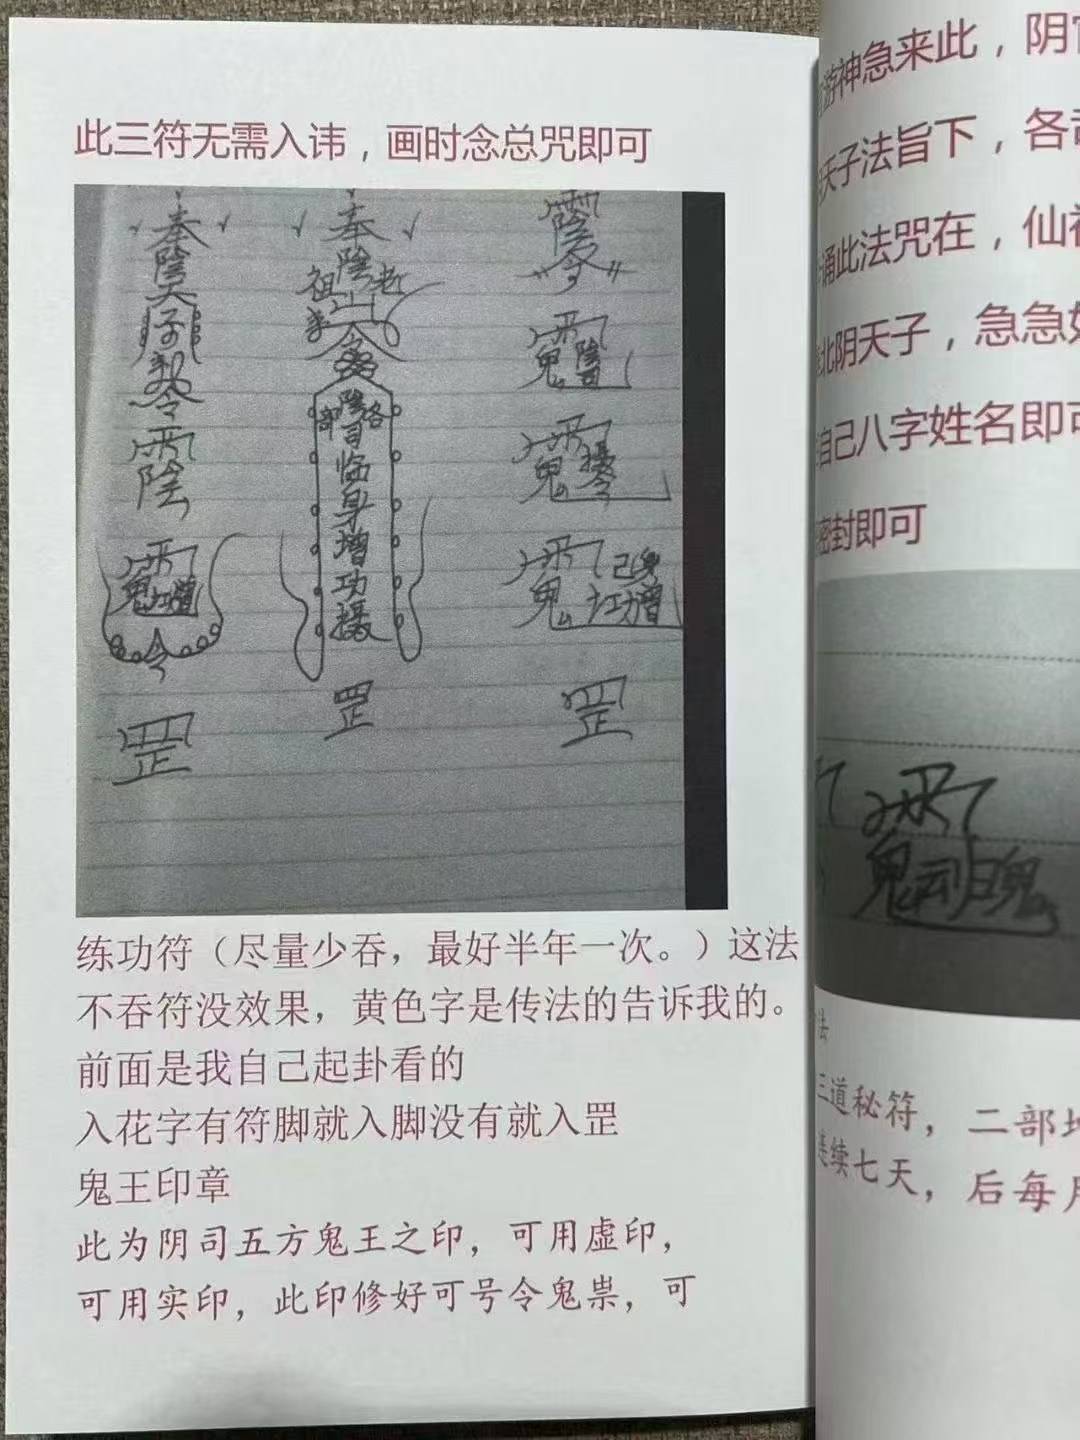 此三符无需入讳，画时念总咒即可
奉陰天子敕令
陰
令
罡
奉陰山令
祖老
各部陰司临身增功摄
罡
陰令
鬼陰司
鬼摄令
鬼己身增功
罡
练功符（尽量少吞，最好半年一次。）这法
不吞符没效果，黄色字是传法的告诉我的。
前面是我自己起卦看的
入花字有符脚就入脚没有就入罡
鬼王印章
此为阴司五方鬼王之印，可用虚印，
可用实印，此印修好可号令鬼祟，可
游神急来此，阴
天子法旨下，各
诵此法咒在，仙
北阴天子，急急
自己八字姓名即可
密封即可
法
三道秘符，二部
连续七天，后每月